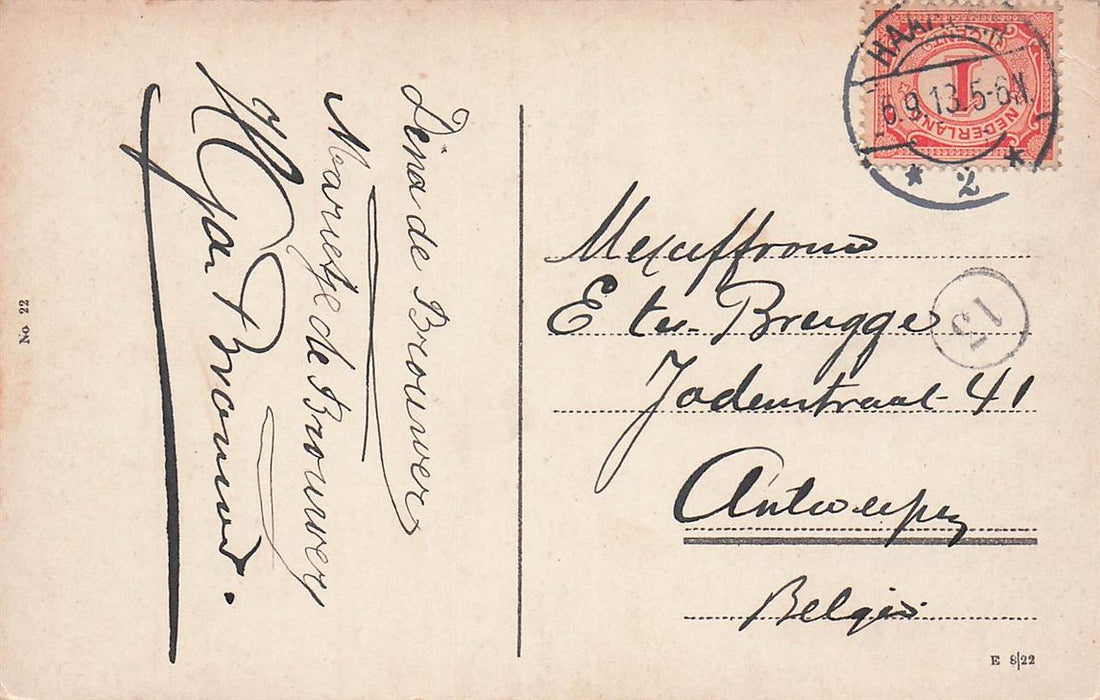 Dina de Brouwer
Marietje de Brouwer
de Brouwer.
No 22
HAARLEM
6.9.13.5-6N.
2
1
CENT
NEDERLAND
Mejuffrouw
E ter Brugge
Jodenstraat 41
15
Antwerpen
België
E 8|22